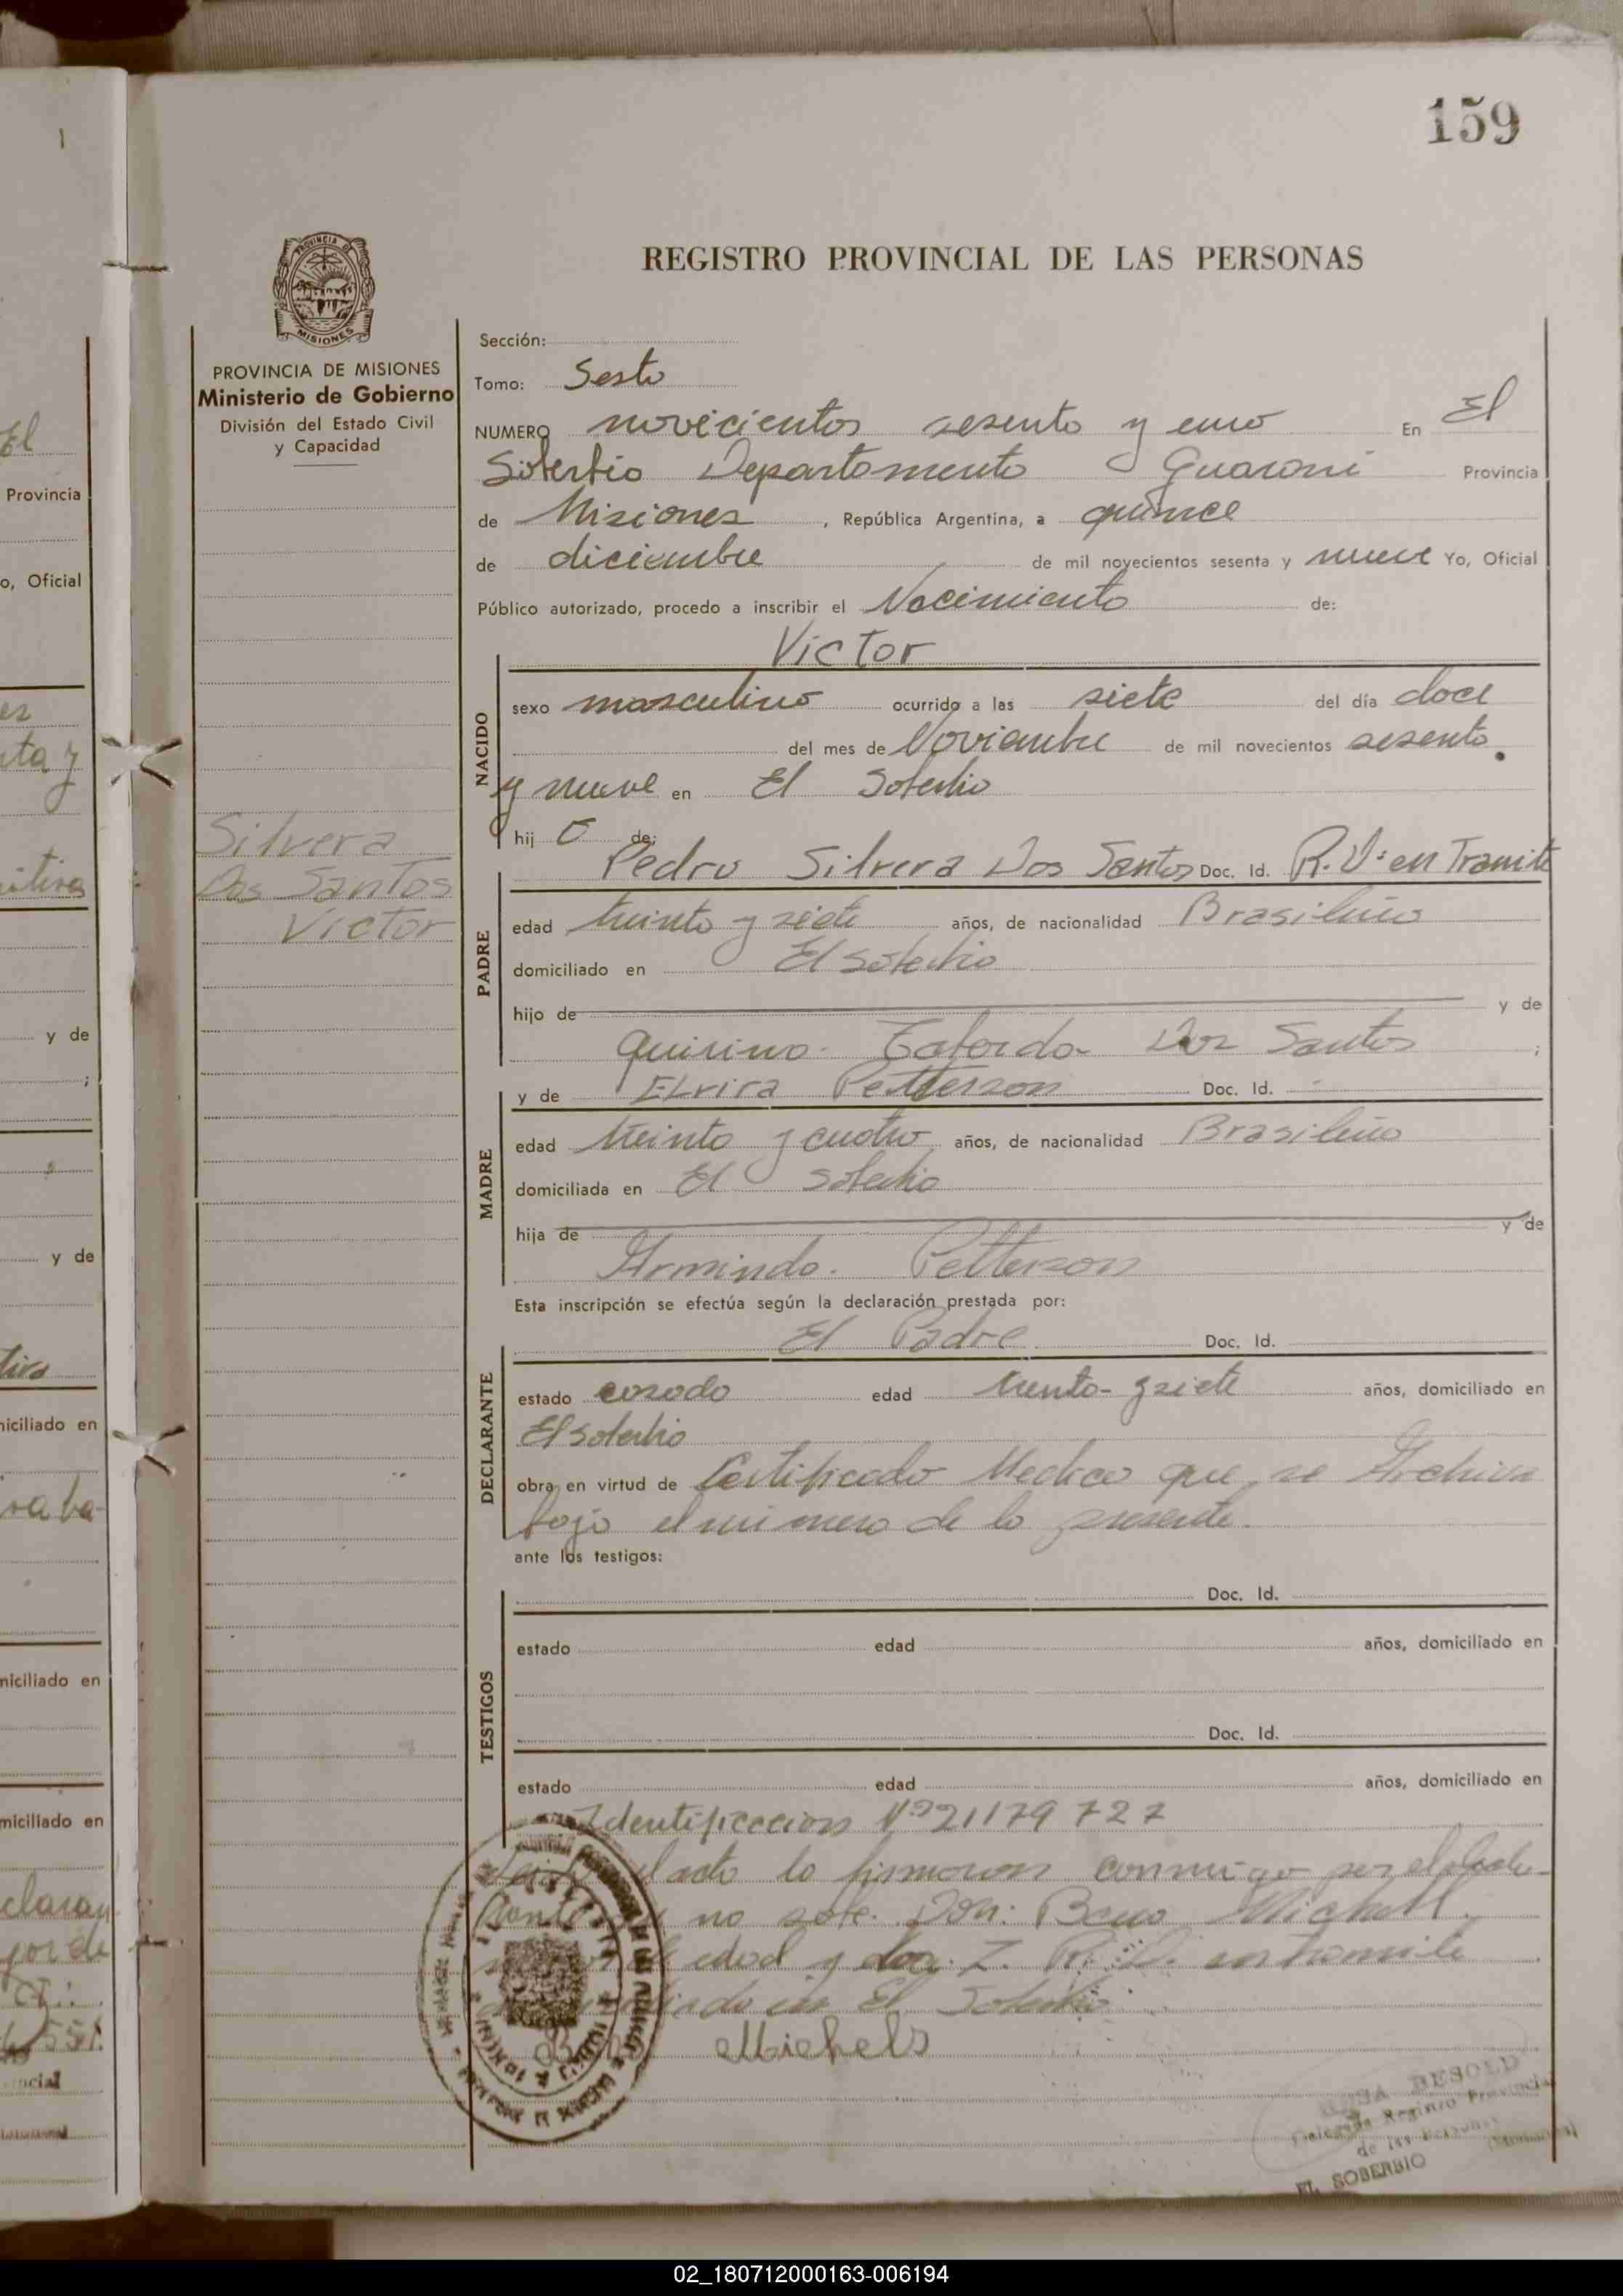 159
REGISTRO PROVINCIAL DE LAS PERSONAS
PROVINCIA DE MISIONES
Ministerio de Gobierno
División del Estado Civil
y Capacidad
Silvera
Dos Santos
Victor
Sección:
Tomo: Sesto
NUMERO novecientos sesenta y uno En El
Soberbio Departamento Guarani Provincia
de Misiones, República Argentina, a quince
de diciembre de mil novecientos sesenta y nueve Yo, Oficial
Público autorizado, procedo a inscribir el Nacimiento de:
Victor
NACIDO
sexo masculino ocurrido a las siete del día doce
del mes de Noviembre de mil novecientos sesenta
y nueve en El Soberbio
hijo de:
Pedro Silvera Dos Santos Doc. Id. R. V: en Tramite
PADRE
edad treinta y siete años, de nacionalidad Brasileña
domiciliado en El Soberbio
hijo de y de
Quirino Dos Santos ;
y de Elvira Petterson Doc. Id.
MADRE
edad treinta y cuatro años, de nacionalidad Brasileña
domiciliada en El Soberbio
hija de y de
Armindo Petterson
Esta inscripción se efectúa según la declaración prestada por:
El Padre Doc. Id.
DECLARANTE
estado casado edad treinta y siete años, domiciliado en
El Soberbio
obra en virtud de Certificado Medico que se Archiva
bajo el numero de la presente.
ante los testigos:
Doc. Id.
TESTIGOS
estado edad años, domiciliado en
Doc. Id.
estado edad años, domiciliado en
Identificacion Nº 21179727
acta la firmaron conmigo por el decla-
rante no sabe Don:
edad y en tramite
en El Soberbio
Michels
BESOLD
Delegada Registro Provincial
de las Personas
EL SOBERBIO
02_180712000163-006194